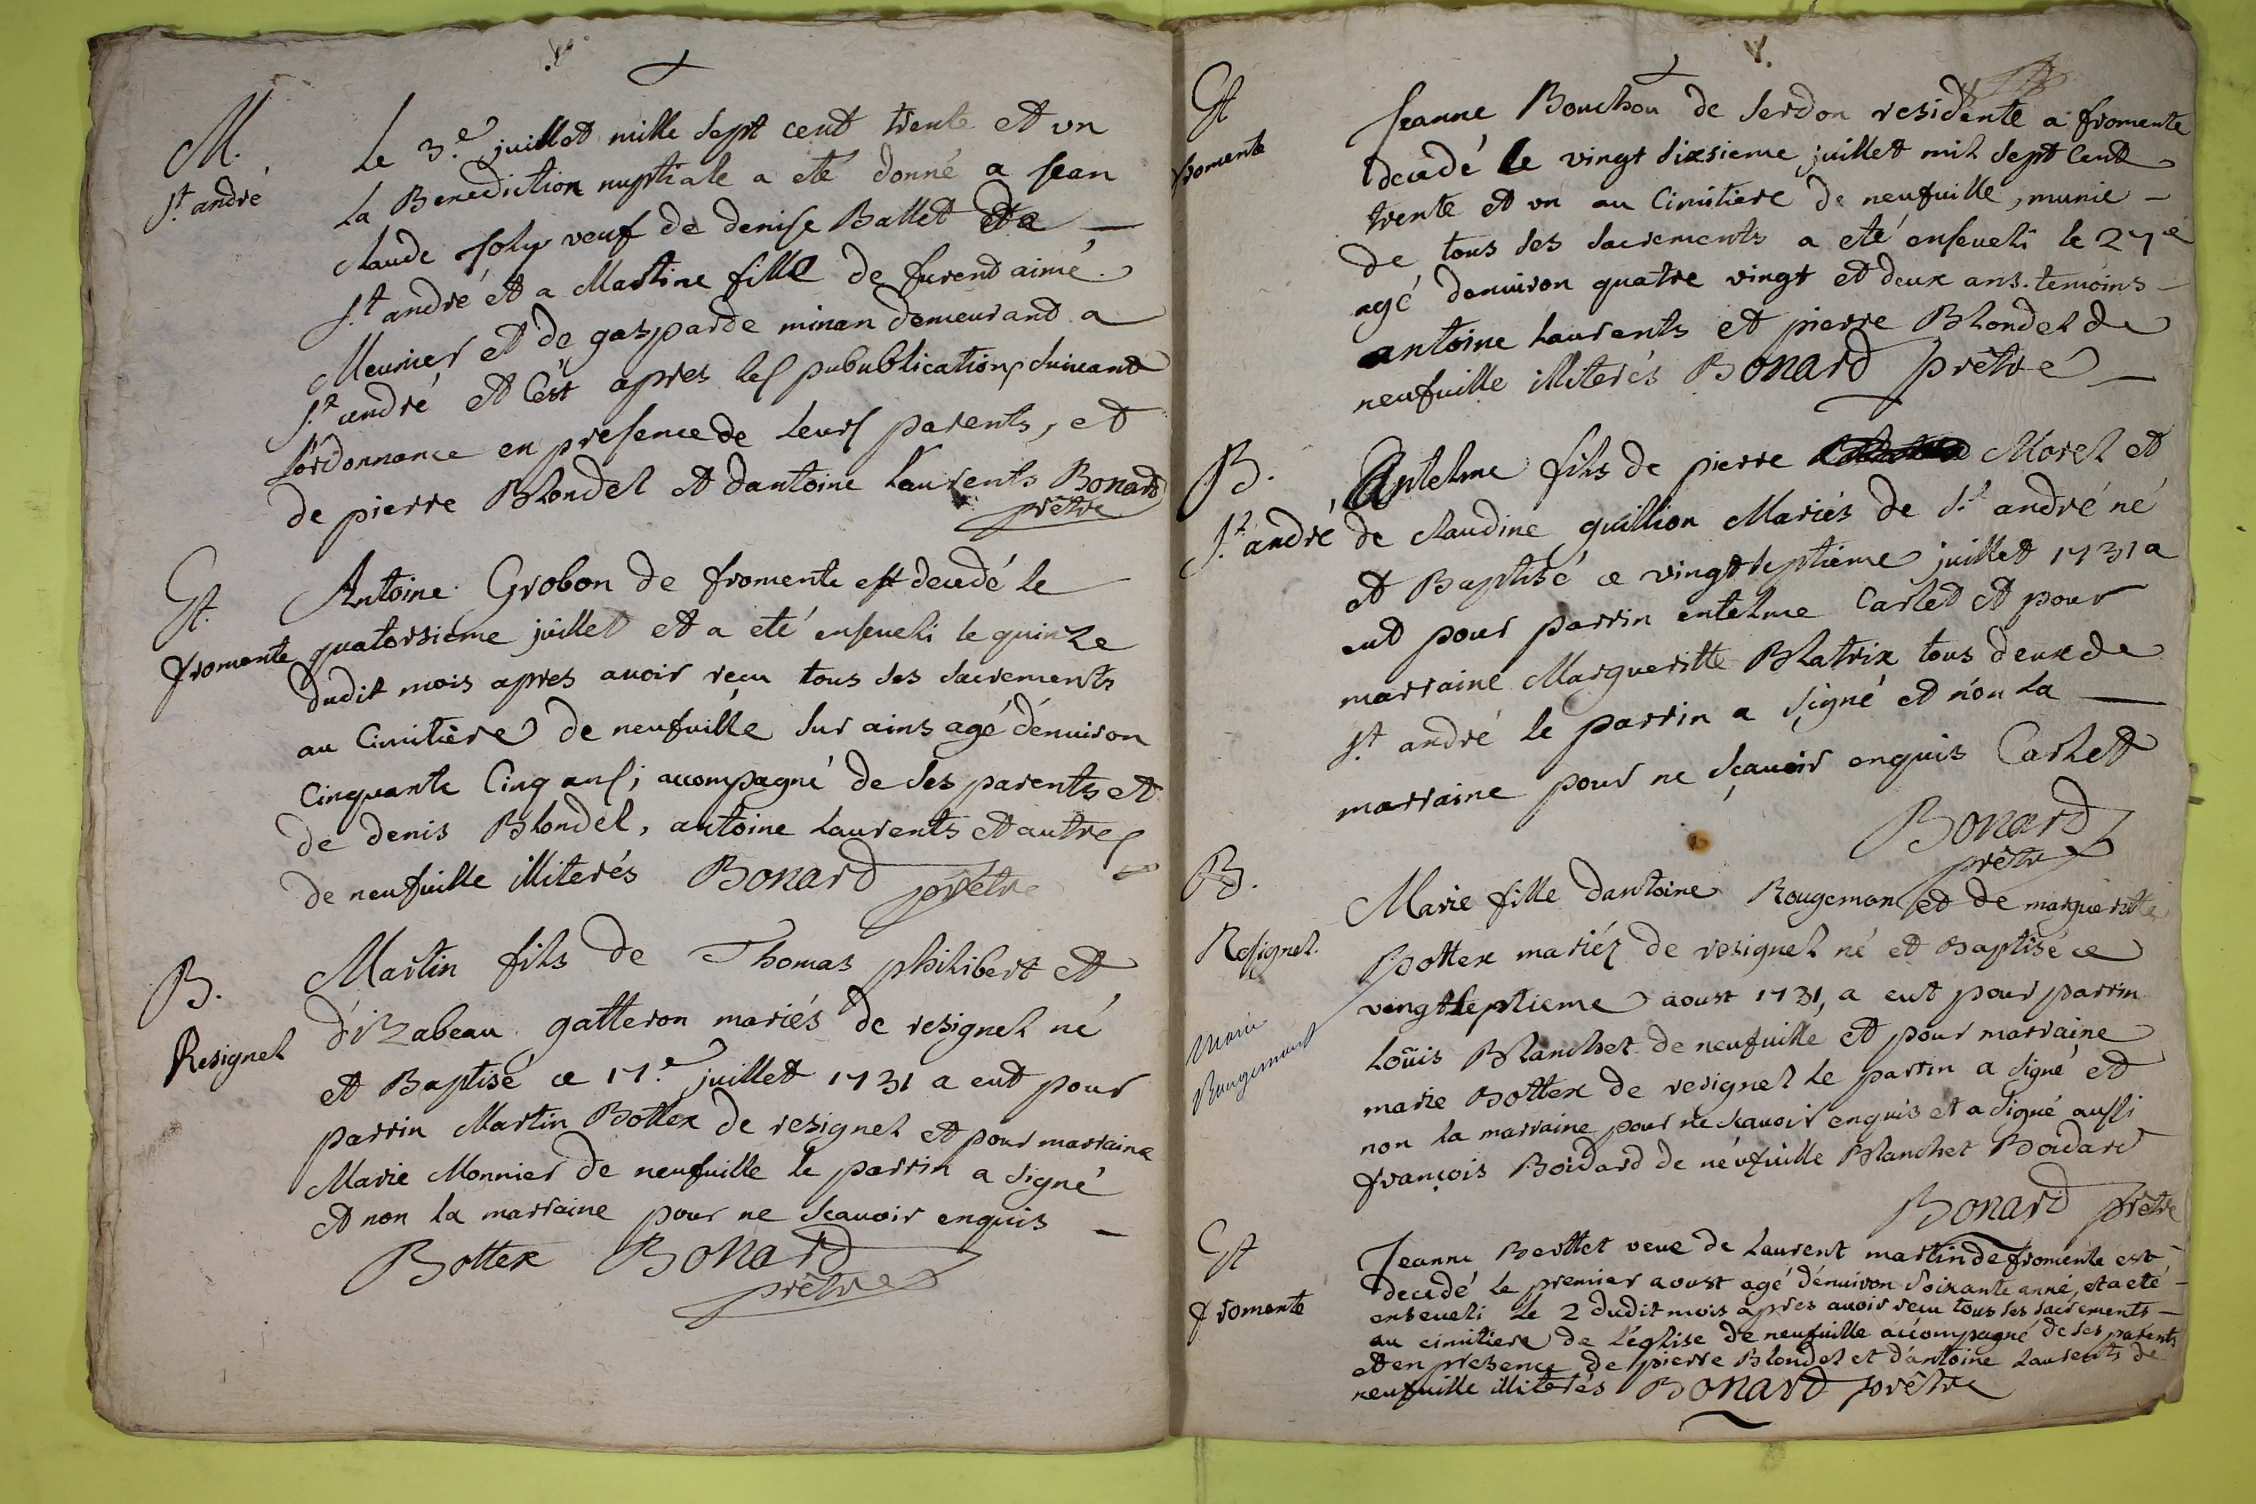 M.
St. andré
Le 3.e juillet mille sept cent trente et vn
La Benediction nuptiale a eté donné a Jean
claude Joly veuf de denise Ballet de
St. andré et a Martine fille de furent aimé
Meunier et de gasparde minan demeurant a
St. andré et c'est apres les pubublications suivant
l'ordonnance en presence de leurs parents, et
de pierre Blondel et dantoine Laurents Bonard
prêtre
Et.
fromente
Antoine Grobon de fromente est decedé le
quatorsiéme juillet et a eté enseueli le quinze
dudit mois apres auoir recu tous ses sacrements
au Cimitière de neufuille sur ains agé d'enuiron
Cinquante Cinq ans; accompagné de ses parents et
de denis Blondel, antoine Laurents et autres
de neufuille illiterés Bonard prêtre
B.
Resignel
Martin fils de Thomas philibert et
d'izabeau gatteron mariés de resignel né
et Baptisé ce 17.e juillet 1731 a eut pour
parrin Martin Bottex de resignel et pour marraine
Marie Monnier de neufuille le parrin a signé
et non la marraine pour ne scauoir enquis
Bottex Bonard
prêtre
Et
fromente
Jeanne Bouchou de serdon residente a fromente
decedé le vingt sixsieme juillet mil sept cent
trente et vn au Cimitiere de neufuille, munie
de tous ses sacrements a eté enseueli le 27e
agé denuiron quatre vingt et deux ans. temoins
antoine Laurents et pierre Blondel de
neufuille illiterés Bonard prêtre
B.
St. andré
Antelme fils de pierre Morel et
de claudine guillion Mariés de St. andré né
et Baptisé ce vingt septiéme juillet 1731 a
eut pour parrin entelme Carlet et pour
marraine Margueritte Blatrix tous deux de
St andré le parrin a signé et non la
marraine pour ne scauoir enquis Carlet
Bonard
prêtre
B.
Resignel.
Marie
Rougemont
Marie fille dantoine Rougemon et de margueritte
Bottex mariéz de resignel né et Baptisé ce
vingt septieme aoust 1731, a eut pour parrin
Loüis Blanchet de neufuille et pour marraine
marie Bottex de resignel le parrin a signé et
non la marraine pour ne scauoir enquis et a signé aussi
françois Boidard de néufuille Blanchet Boidard
Bonard prêtre
Et
fromente
Jeanne Berttet veue de Laurent martin de fromente est
decedé le premier aoust agé d'enuiron soixante anné, et a eté
enseueli le 2 dudit mois apres auoir recu tous ses sacrements
au cimitiere de l'église de neufuille accompagné de ses parents
et en presence de pierre Blondel et d'antoine Laurents de
neufuille illiterés Bonard prêtre